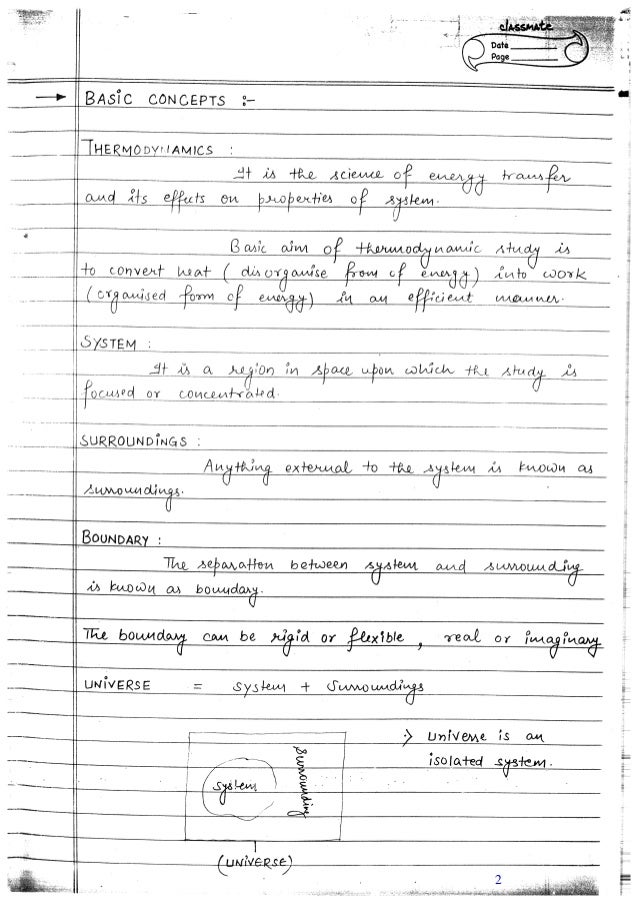 classmate
Date
Page
→ BASIC CONCEPTS :-
THERMODYNAMICS :
It is the science of energy transfer
and its effects on properties of system.
Basic aim of thermodynamic study is
to convert heat ( disorganise from of energy) into work
(organised form of energy) in an efficient manner.
SYSTEM :
It is a region in space upon which the study is
focused or concentrated.
SURROUNDINGS :
Anything external to the system is known as
surroundings.
BOUNDARY :
The separation between system and surrounding
is known as boundary.
The boundary can be rigid or flexible , real or imaginary
UNIVERSE = system + surroundings
:) Universe is an
isolated system.
system
surrounding
(UNIVERSE)
2